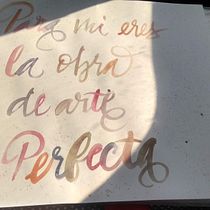 Para mi eres
la obra
de arte
Perfecta